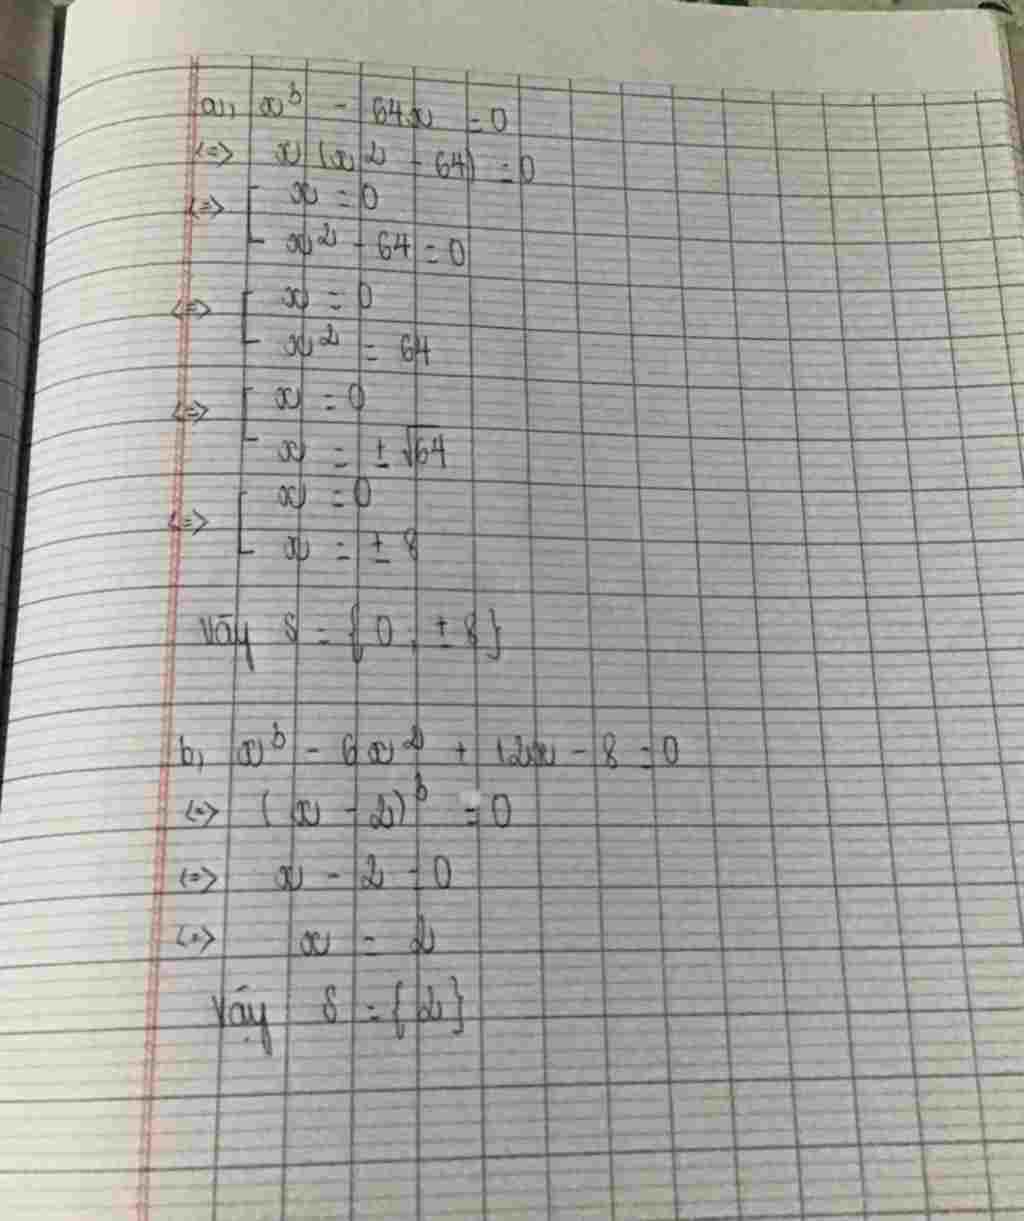 a, x³ - 64x = 0
<=> x (x² - 64) = 0
<=> [ x = 0
x² - 64 = 0
<=> [ x = 0
x² = 64
<=> [ x = 0
x = ± √64
<=> [ x = 0
x = ± 8
Vậy S = { 0, ± 8 }
b, x³ - 6x² + 12x - 8 = 0
<=> (x - 2)³ = 0
<=> x - 2 = 0
<=> x = 2
Vậy S = { 2 }